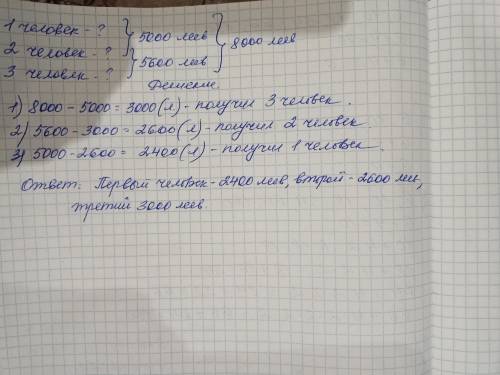 1 человек - ? } 5000 леев } 8000 леев
2 человек - ?
3 человек - ? } 5600 леев
Решение.
1) 8000 - 5000 = 3000 (л) - получил 3 человек.
2) 5600 - 3000 = 2600 (л) - получил 2 человек.
3) 5000 - 2600 = 2400 (л) - получил 1 человек.
Ответ: Первый человек - 2400 леев, второй - 2600 леев,
третий 3000 леев.